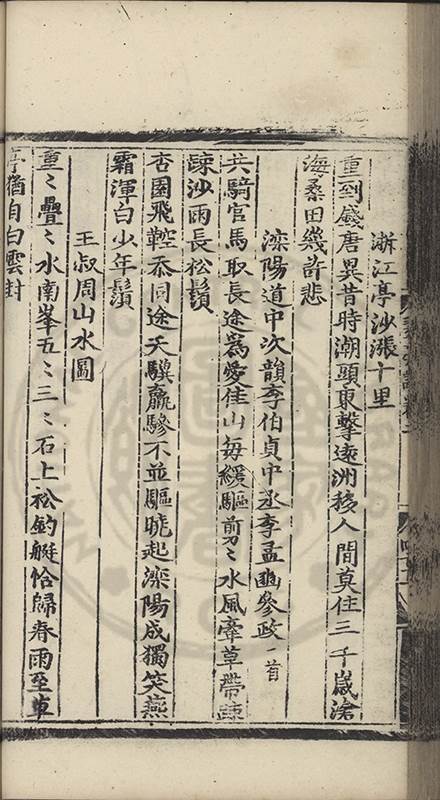 浙江亭沙漲十里
重到錢唐異昔時潮頭東擊遠洲移人間莫住三千歲滄
海桑田幾許悲
灤陽道中次韻李伯貞中丞李孟豳參政一首
共騎官馬取長途爲愛佳山每緩驅剪〻水風牽草帶疎
疎沙雨長松鬚
杏園飛鞚忝同途天驥羸驂不並驅曉起灤陽成獨笑燕
霜渾白少年鬚
王叔周山水圖
重〻疊〻水南峯五〻三〻石上松釣艇恰歸春雨至草
亭猶自白雲封